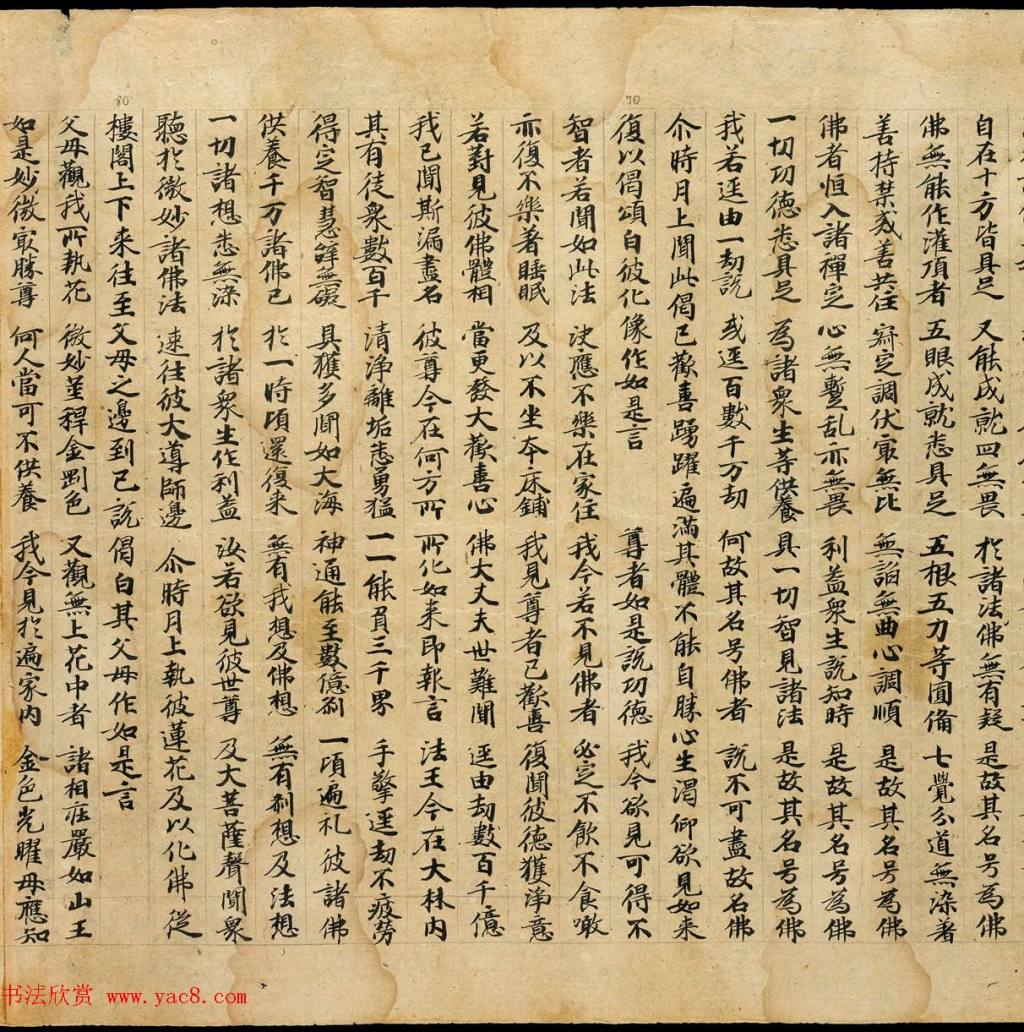 自在十方皆具足 又能成就四無畏 於諸法佛無有疑 是故其名号為佛
佛無能作灌頂者 五眼成就悉具足 五根五力等圓備 七覺分道無染著
善持禁戒善共住 寂定調伏寂無比 無諂無曲心調順 是故其名号為佛
佛者恒入諸禪定 心無蹔乱亦無畏 利益衆生說知時 是故其名号為佛
一切功德悉具足 為諸衆生等供養 具一切智見諸法 是故其名号為佛
我若逕由一劫說 或逕百數千万劫 何故其名号佛者 說不可盡故名佛
尒時月上聞此偈已歡喜踴躍遍滿其體不能自勝心生渴仰欲見如来
復以偈頌白彼化像作如是言 尊者如是說功德 我今欲見可得不
智者若聞如此法 決應不樂在家住 我今若不見佛者 必定不飲不食噉
亦復不樂著睡眠 及以不坐夲床鋪 我見尊者已歡喜 復聞彼德獲淨意
若對見彼佛體相 當更發大歡喜心 佛大丈夫世難聞 逕由劫數百千億
我已聞斯漏盡名 彼尊今在何方所 所化如来即報言 法王今在大林内
其有徒衆數百千 清淨離垢悉勇猛 一一能負三千界 手擎逕劫不疲勞
得定智慧辝無礙 具獲多聞如大海 神通能至數億剎 一頃遍礼彼諸佛
供養千万諸佛已 於一時頃還復来 無有我想及佛想 無有剎想及法想
一切諸想悉無染 於諸衆生作利益 汝若欲見彼世尊 及大菩薩聲聞衆
聽於微妙諸佛法 速往彼大導師邊 尒時月上執彼蓮花及以化佛從
樓閣上下来往至父母之邊到已說偈白其父母作如是言
父母觀我所執花 微妙莖稈金剛色 又觀無上花中者 諸相莊嚴如山王
如是妙微寂勝尊 何人當可不供養 我今見於遍家内 金色光曜母應知
80
70
书法欣赏 www.yac8.com